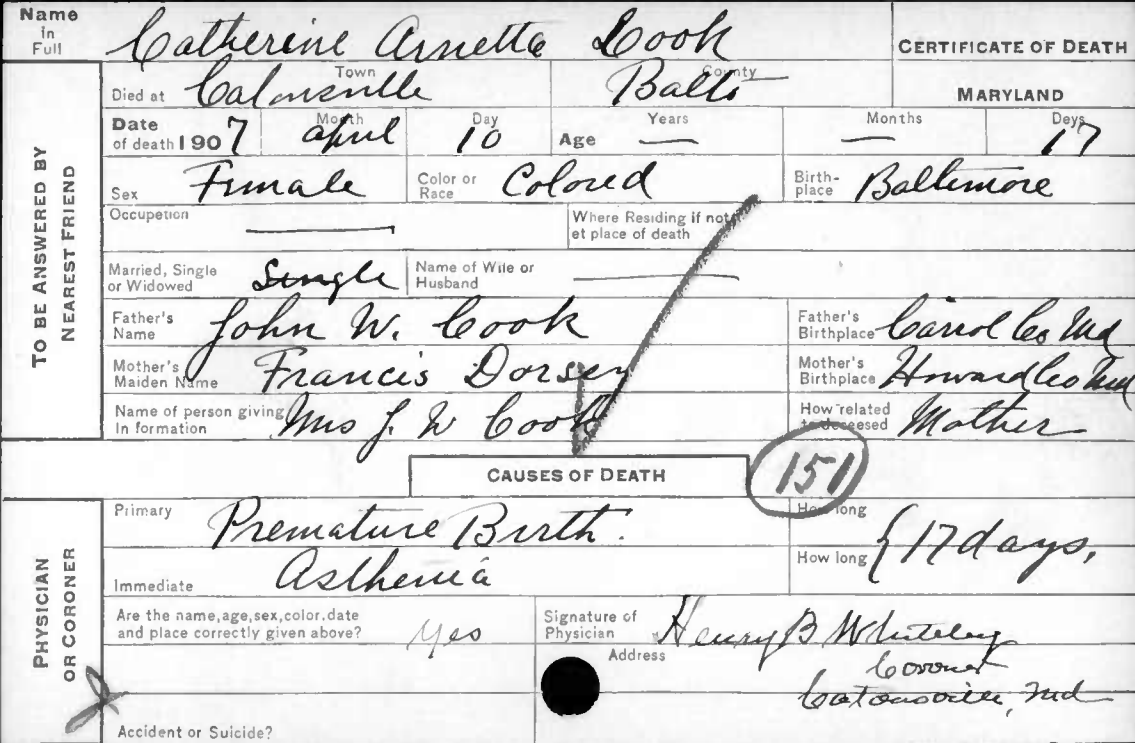 Name in Full Catherine Arnetta Cook CERTIFICATE OF DEATH
TO BE ANSWERED BY NEAREST FRIEND
Died at Town Catonsville County Balto MARYLAND
Date of death 1907 Month April Day 10 Age Years — Months — Days 17
Sex Female Color or Race Colored Birth-place Baltimore
Occupation — Where Residing if not at place of death
Married, Single or Widowed Single Name of Wife or Husband —
Father's Name John W. Cook Father's Birthplace Carrol Co Md
Mother's Maiden Name Francis Dorsey Mother's Birthplace Howard Co Md
Name of person giving In formation Mrs J. W Cook How related to deceased Mother
CAUSES OF DEATH 151
PHYSICIAN OR CORONER
Primary Premature Birth. How long
Immediate Asthenia How long { 17 days,
Are the name, age, sex, color, date and place correctly given above? yes Signature of Physician Henry B Whiteley
Address Coroner
Catonsville, Md
Accident or Suicide?